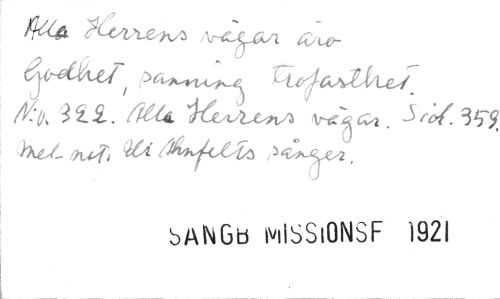 Alla Herrens vägar äro
Godhet, sanning trofasthet.
N:o. 322. Alla Herrens vägar. Sid. 359.
med not. Ur Ahnfelts sånger.
SANGB MISSIONSF 1921